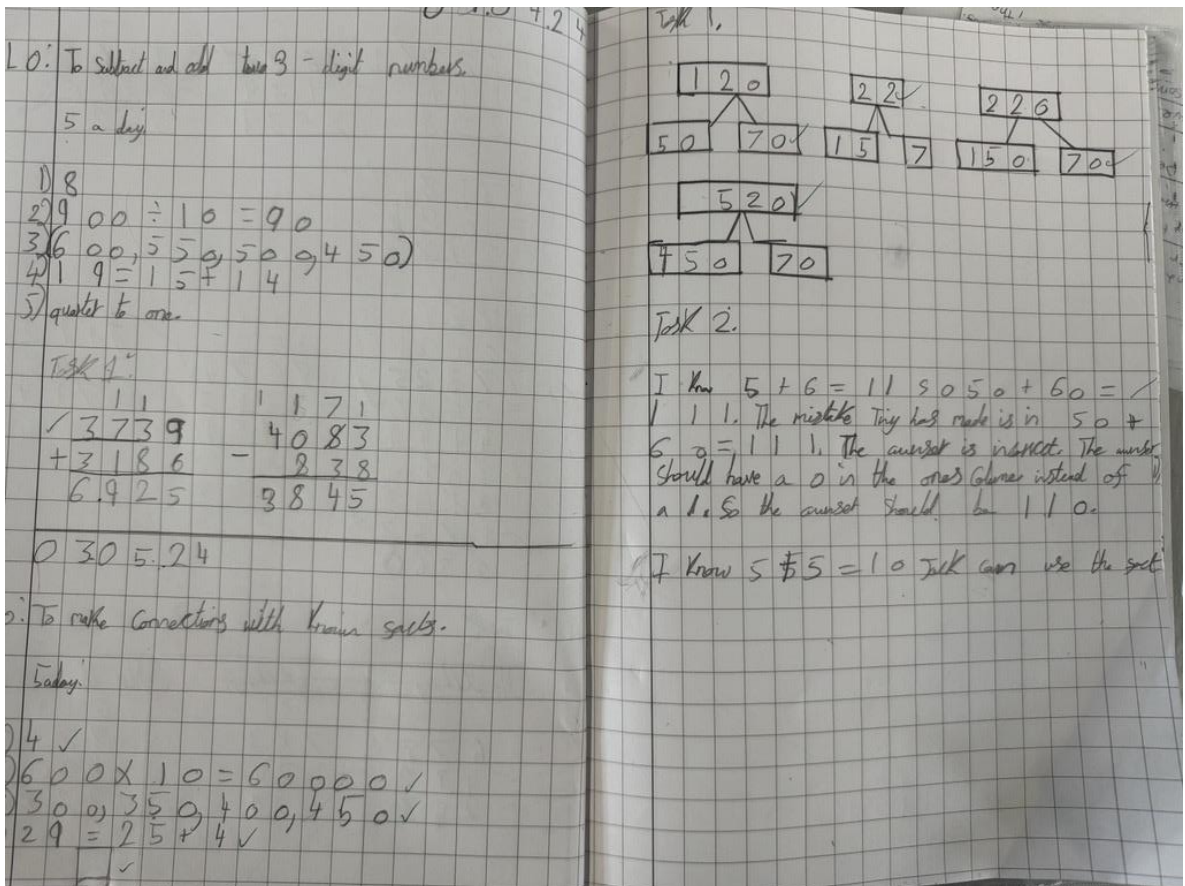 4.24
LO: To subtract and add two 3-digit numbers.
5 a day
1) 8
2) 900 ÷ 10 = 90
3) (600, 550, 500, 450)
4) 19 = 15 + 14
5) quarter to one.
Task 1:
1 1
3739
+3186
6925
1 1 7 1
4083
- 838
3845
0305.24
To make Connections with Known sacts.
5 a day:
4 ✓
600 x 10 = 60000 ✓
300, 350, 400, 450 ✓
29 = 25 + 4 ✓
✓
Task 1.
120
50 70 ✓
22 ✓
15 7
220
150 70 ✓
520 ✓
450 70
Task 2.
I Know 5 + 6 = 11 so 50 + 60 =
111. The mistake Tiny has made is in 50 +
60 = 111. The aunser is The
should have a 0 in the ones instead of
a 1. So the aunser should be 110.
I Know 5 + 5 = 10 Jack can use the sact